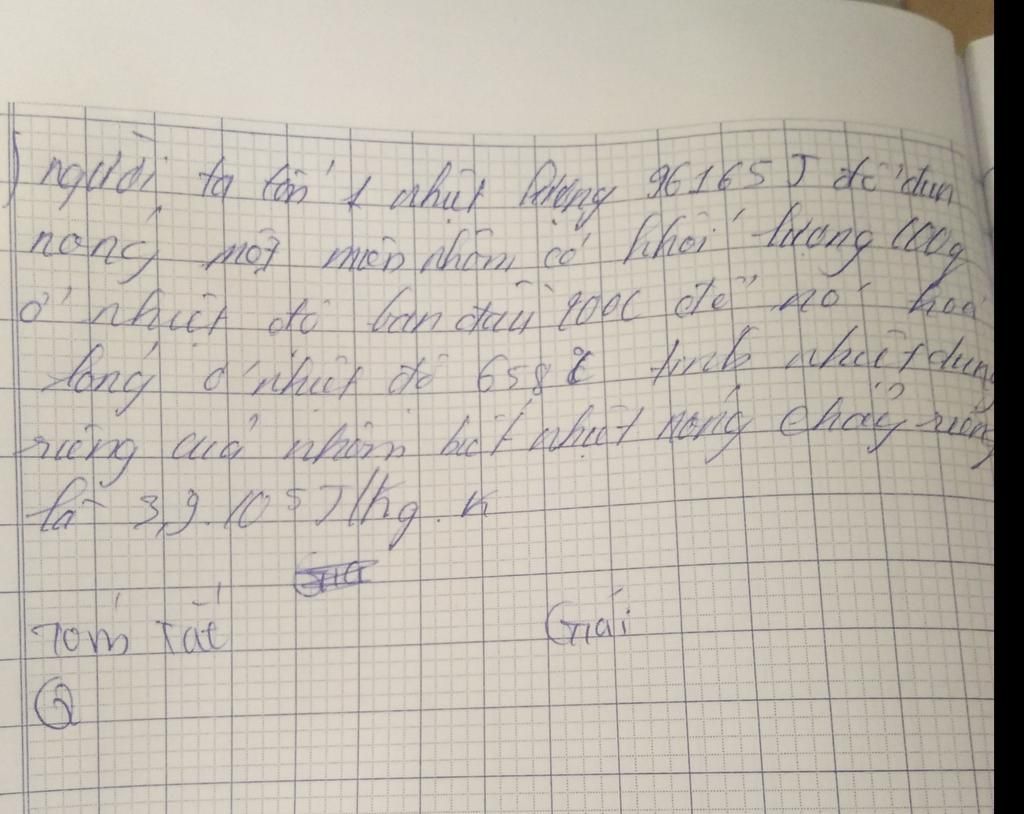 người ta tốn 1 nhiệt lượng 96165 J để đun
nóng một miến nhôm có khối lượng 100g
ở nhiệt độ ban đầu 200C để nó hoá
lỏng ở nhiệt độ 658°C tính nhiệt dung
riêng của nhôm biết nhiệt nóng chảy riêng
là 3,9.105 J/kg.K
Tóm Tắt
Giải
Q